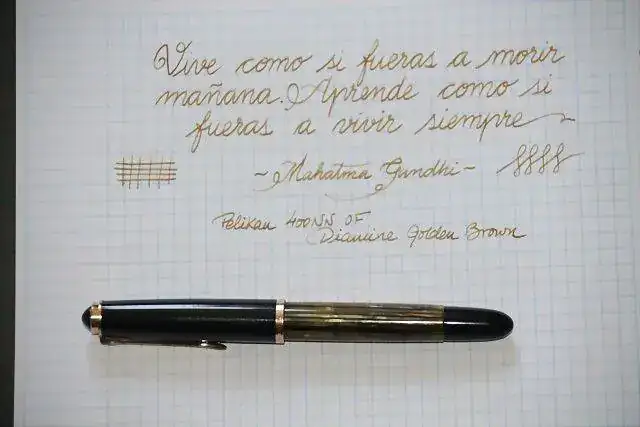 Vive como si fueras a morir
mañana. Aprende como si
fueras a vivir siempre
~ Mahatma Gandhi ~
Pelikan 400NN OF
Diamine Golden Brown